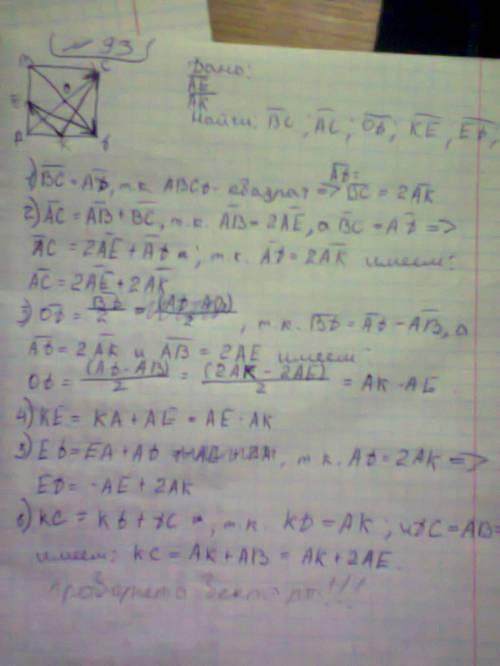 № 93
B C
O
E
A K D
Дано:
AE
AK
Найти: BC; AC; OD; KE; ED;
1) BC = AD, т.к. ABCD - квадрат => AD = BC = 2AK
2) AC = AB + BC, т.к. AB = 2AE, а BC = AD =>
AC = 2AE + AD; т.к. AD = 2AK имеем:
AC = 2AE + 2AK
3) OD = BD/2 = (AD - AB)/2, т.к. BD = AD - AB, а
AD = 2AK и AB = 2AE имеем
OD = (AD - AB)/2 = (2AK - 2AE)/2 = AK - AE
4) KE = KA + AE = AE - AK
5) ED = EA + AD, т.к. AD = 2AK =>
ED = -AE + 2AK
6) KC = KD + DC, т.к. KD = AK; и DC = AB =
имеем: KC = AK + AB = AK + 2AE.
!!!